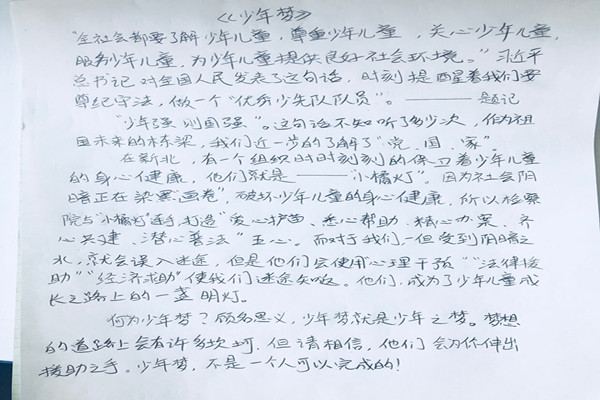 《少年梦》
“全社会都要了解少年儿童，尊重少年儿童，关心少年儿童，
服务少年儿童，为少年儿童提供良好社会环境。”习近平
总书记对全国人民发表了这句话，时刻提醒着我们要
尊纪守法，做一个“优秀少先队队员”。——题记
“少年强则国强”。这句话不知听了多少次，作为祖
国未来的栋梁，我们近一步的了解了“党、国、家”。
在新北，有一个组织时时刻刻的保卫着少年儿童
的身心健康，他们就是——“小橘灯”。因为社会阴
暗正在染雾“画卷”，破坏少年儿童的身心健康，所以检察
院与“小橘灯”连手，打造“爱心护苗、悉心帮助、精心办案、齐
心共建、潜心普法”五心。而对于我们，一但受到阴暗之
水，就会误入迷途，但是他们会使用“心理干预”“法律援
助”“经济求助”使我们迷途知返。他们，成为了少年儿童成
长之路上的一盏明灯。
何为少年梦？顾名思义，少年梦就是少年之梦。梦想
的道路上会有许多坎坷，但请相信，他们会为你伸出
援助之手。少年梦，不是一个人可以完成的！